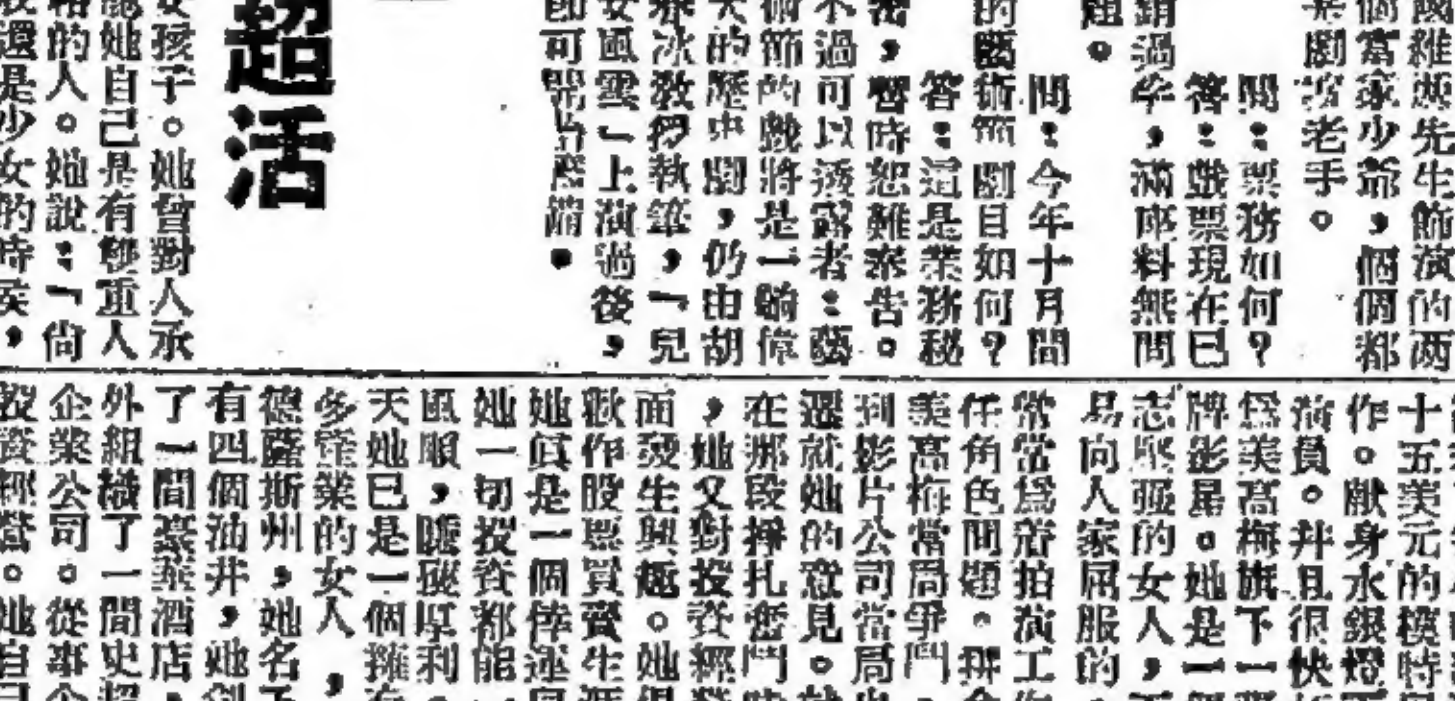 先生飾演的两
個富家少爺,個個都
老手。
問:票務如何?
答:戲票現在已
銷過半,滿座料無問
題。
問:今年十月間
的藝術節劇目如何?
答:這是業務秘
密,暫時恕難奉告。
不過可以透露者:藝
術節的戲將是一齣偉
大的歷史劇,仍由胡
春冰教授執筆,「兒
女風雲」上演過後,
即可開始籌備。
超活
女孩子。她曾對人承
認她自己是有雙重人
格的人。她說:「尙
我還是少女的時候,
十五美元的模特
作。献身水銀燈
演員。并且很快
爲美高梅旗下一
牌影星。她是一
志堅强的女人,
易向人家屈服的
常常爲着拍演工
任角色問題。拼
美高梅當局爭鬥
到影片公司當局
就她的意見。
在那段掙扎奮鬥
,她又對投資經
面發生興趣。她
歡作股票買賣生涯
她眞是一個倖運
她一切投資都能
風順,厚利
天她已是一個擁
多產業的女人,
德薩斯州,她名
有四個油井,她創
了一間豪華酒店,
外組織了一間史超
企業公司。從事
投資經營。她自己